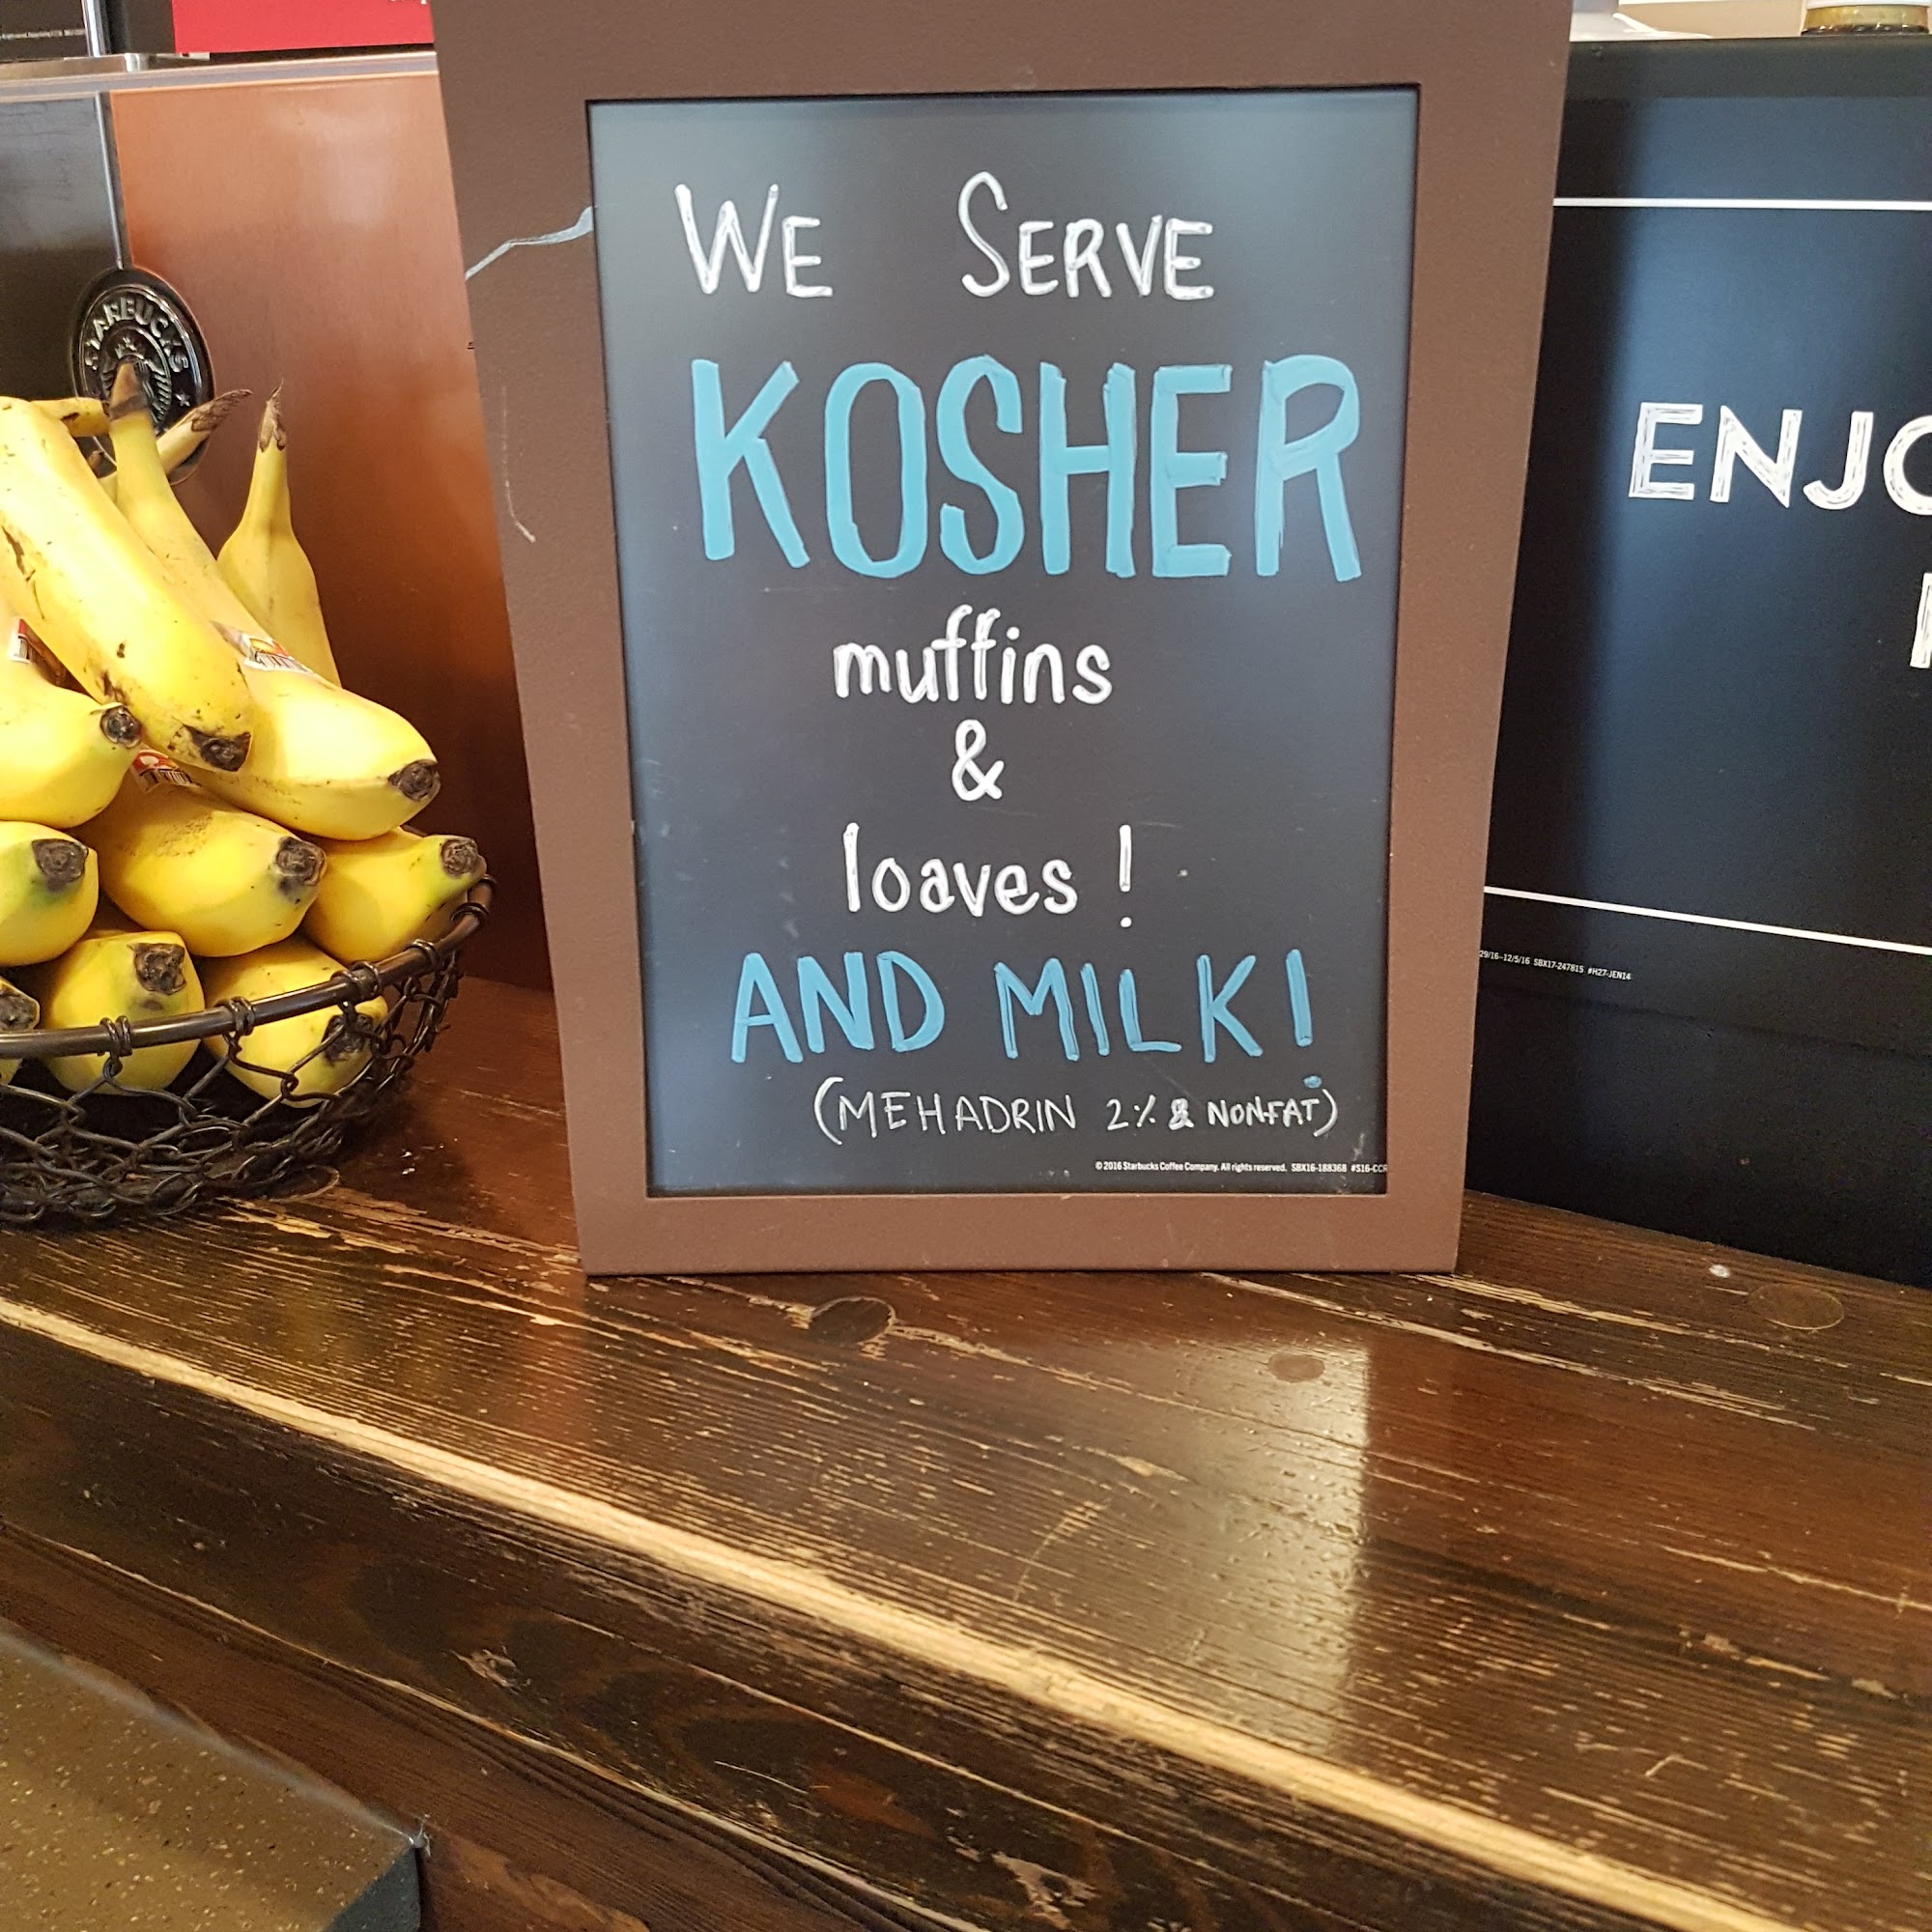 WE SERVE
KOSHER
muffins
&
loaves!
AND MILK!
(MEHADRIN 2% & NONFAT)
© 2016 Starbucks Coffee Company. All rights reserved. SBX16-188368 #S16-CCR
STARBUCKS
ENJO
29/16–12/5/16 SBX17-247815 #H27-JEN14